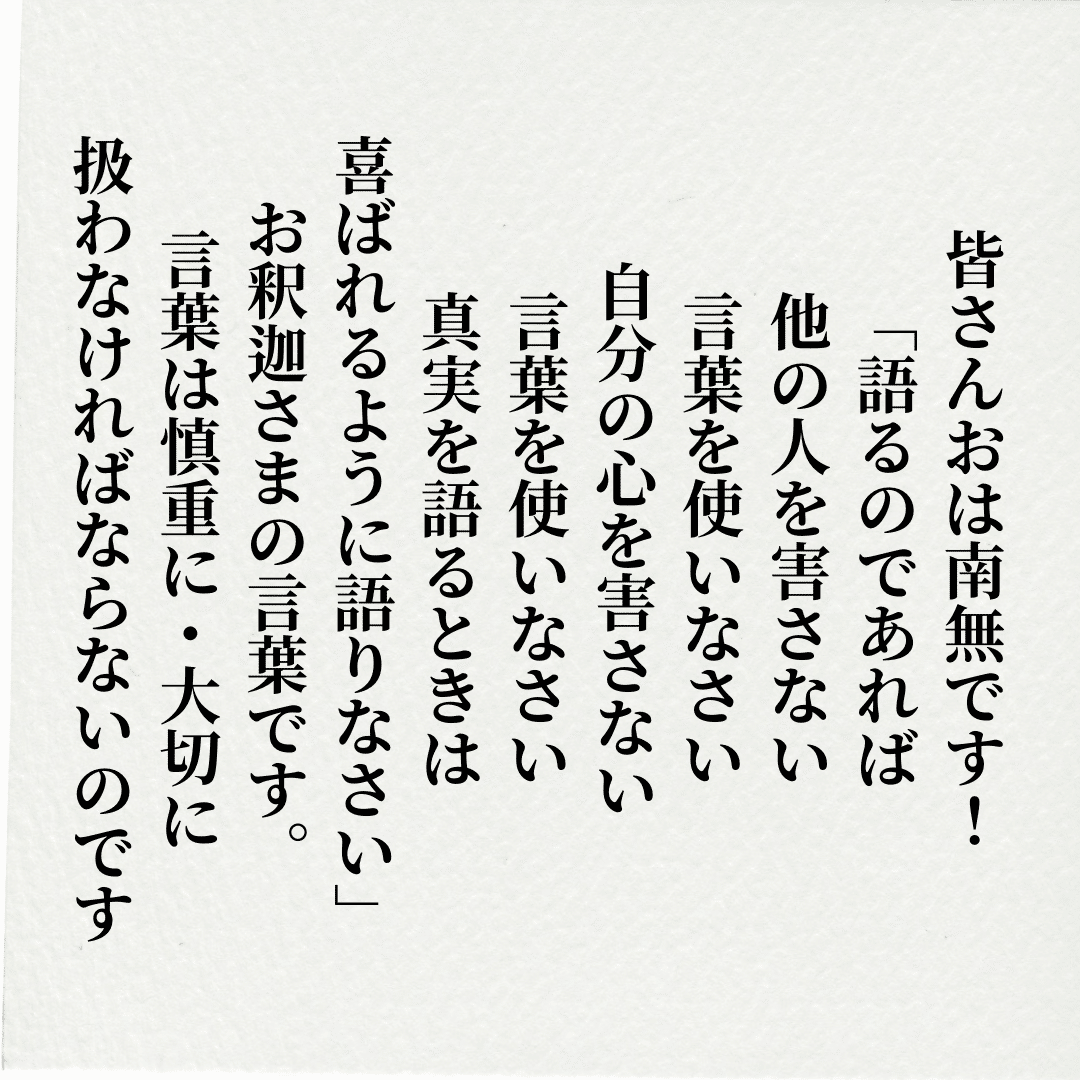 皆さんおは南無です！
「語るのであれば
他の人を害さない
言葉を使いなさい
自分の心を害さない
言葉を使いなさい
真実を語るときは
喜ばれるように語りなさい」
お釈迦さまの言葉です。
言葉は慎重に・大切に
扱わなければならないのです